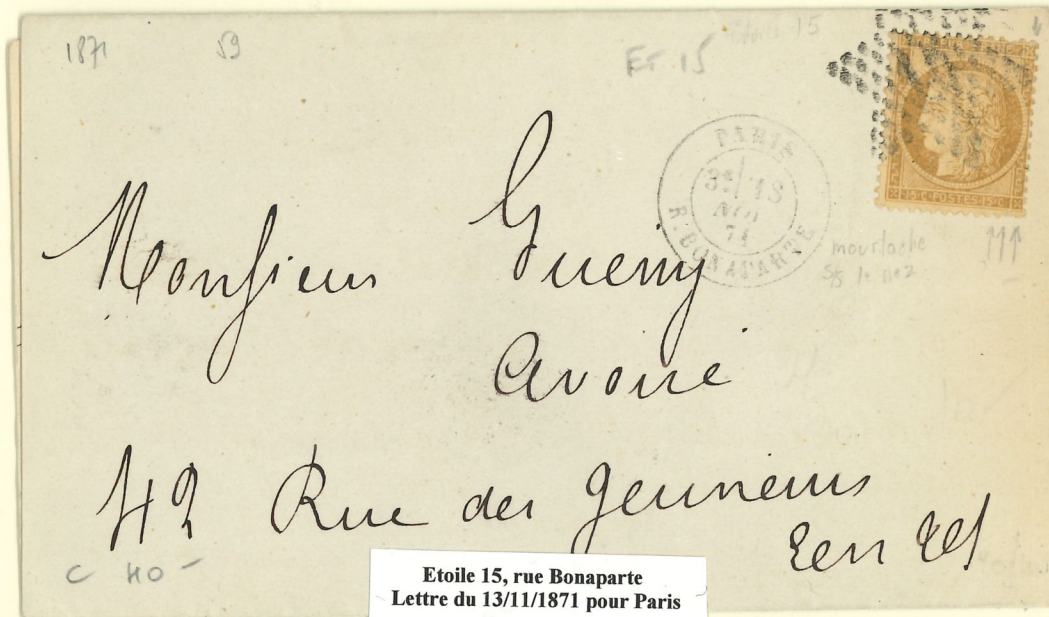 1871 59 Et 15
PARIS
3E/ 13
NOV
71
R. BONAPARTE
15 C · POSTES · 15 C
moustache
s/s le nez
Monsieur Guerry
Avoué
42 Rue des Jeuneurs
C 40 -
Etoile 15, rue Bonaparte
Lettre du 13/11/1871 pour Paris